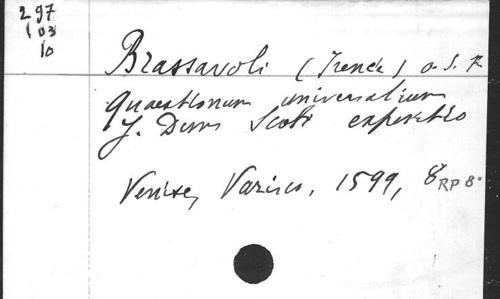 297
103
10
Brassavoli (Irenée) o. S. F.
Quaestionum universalium
J. Duns Scoti expositio
Venise, Varisco, 1599, 8° RP 8°